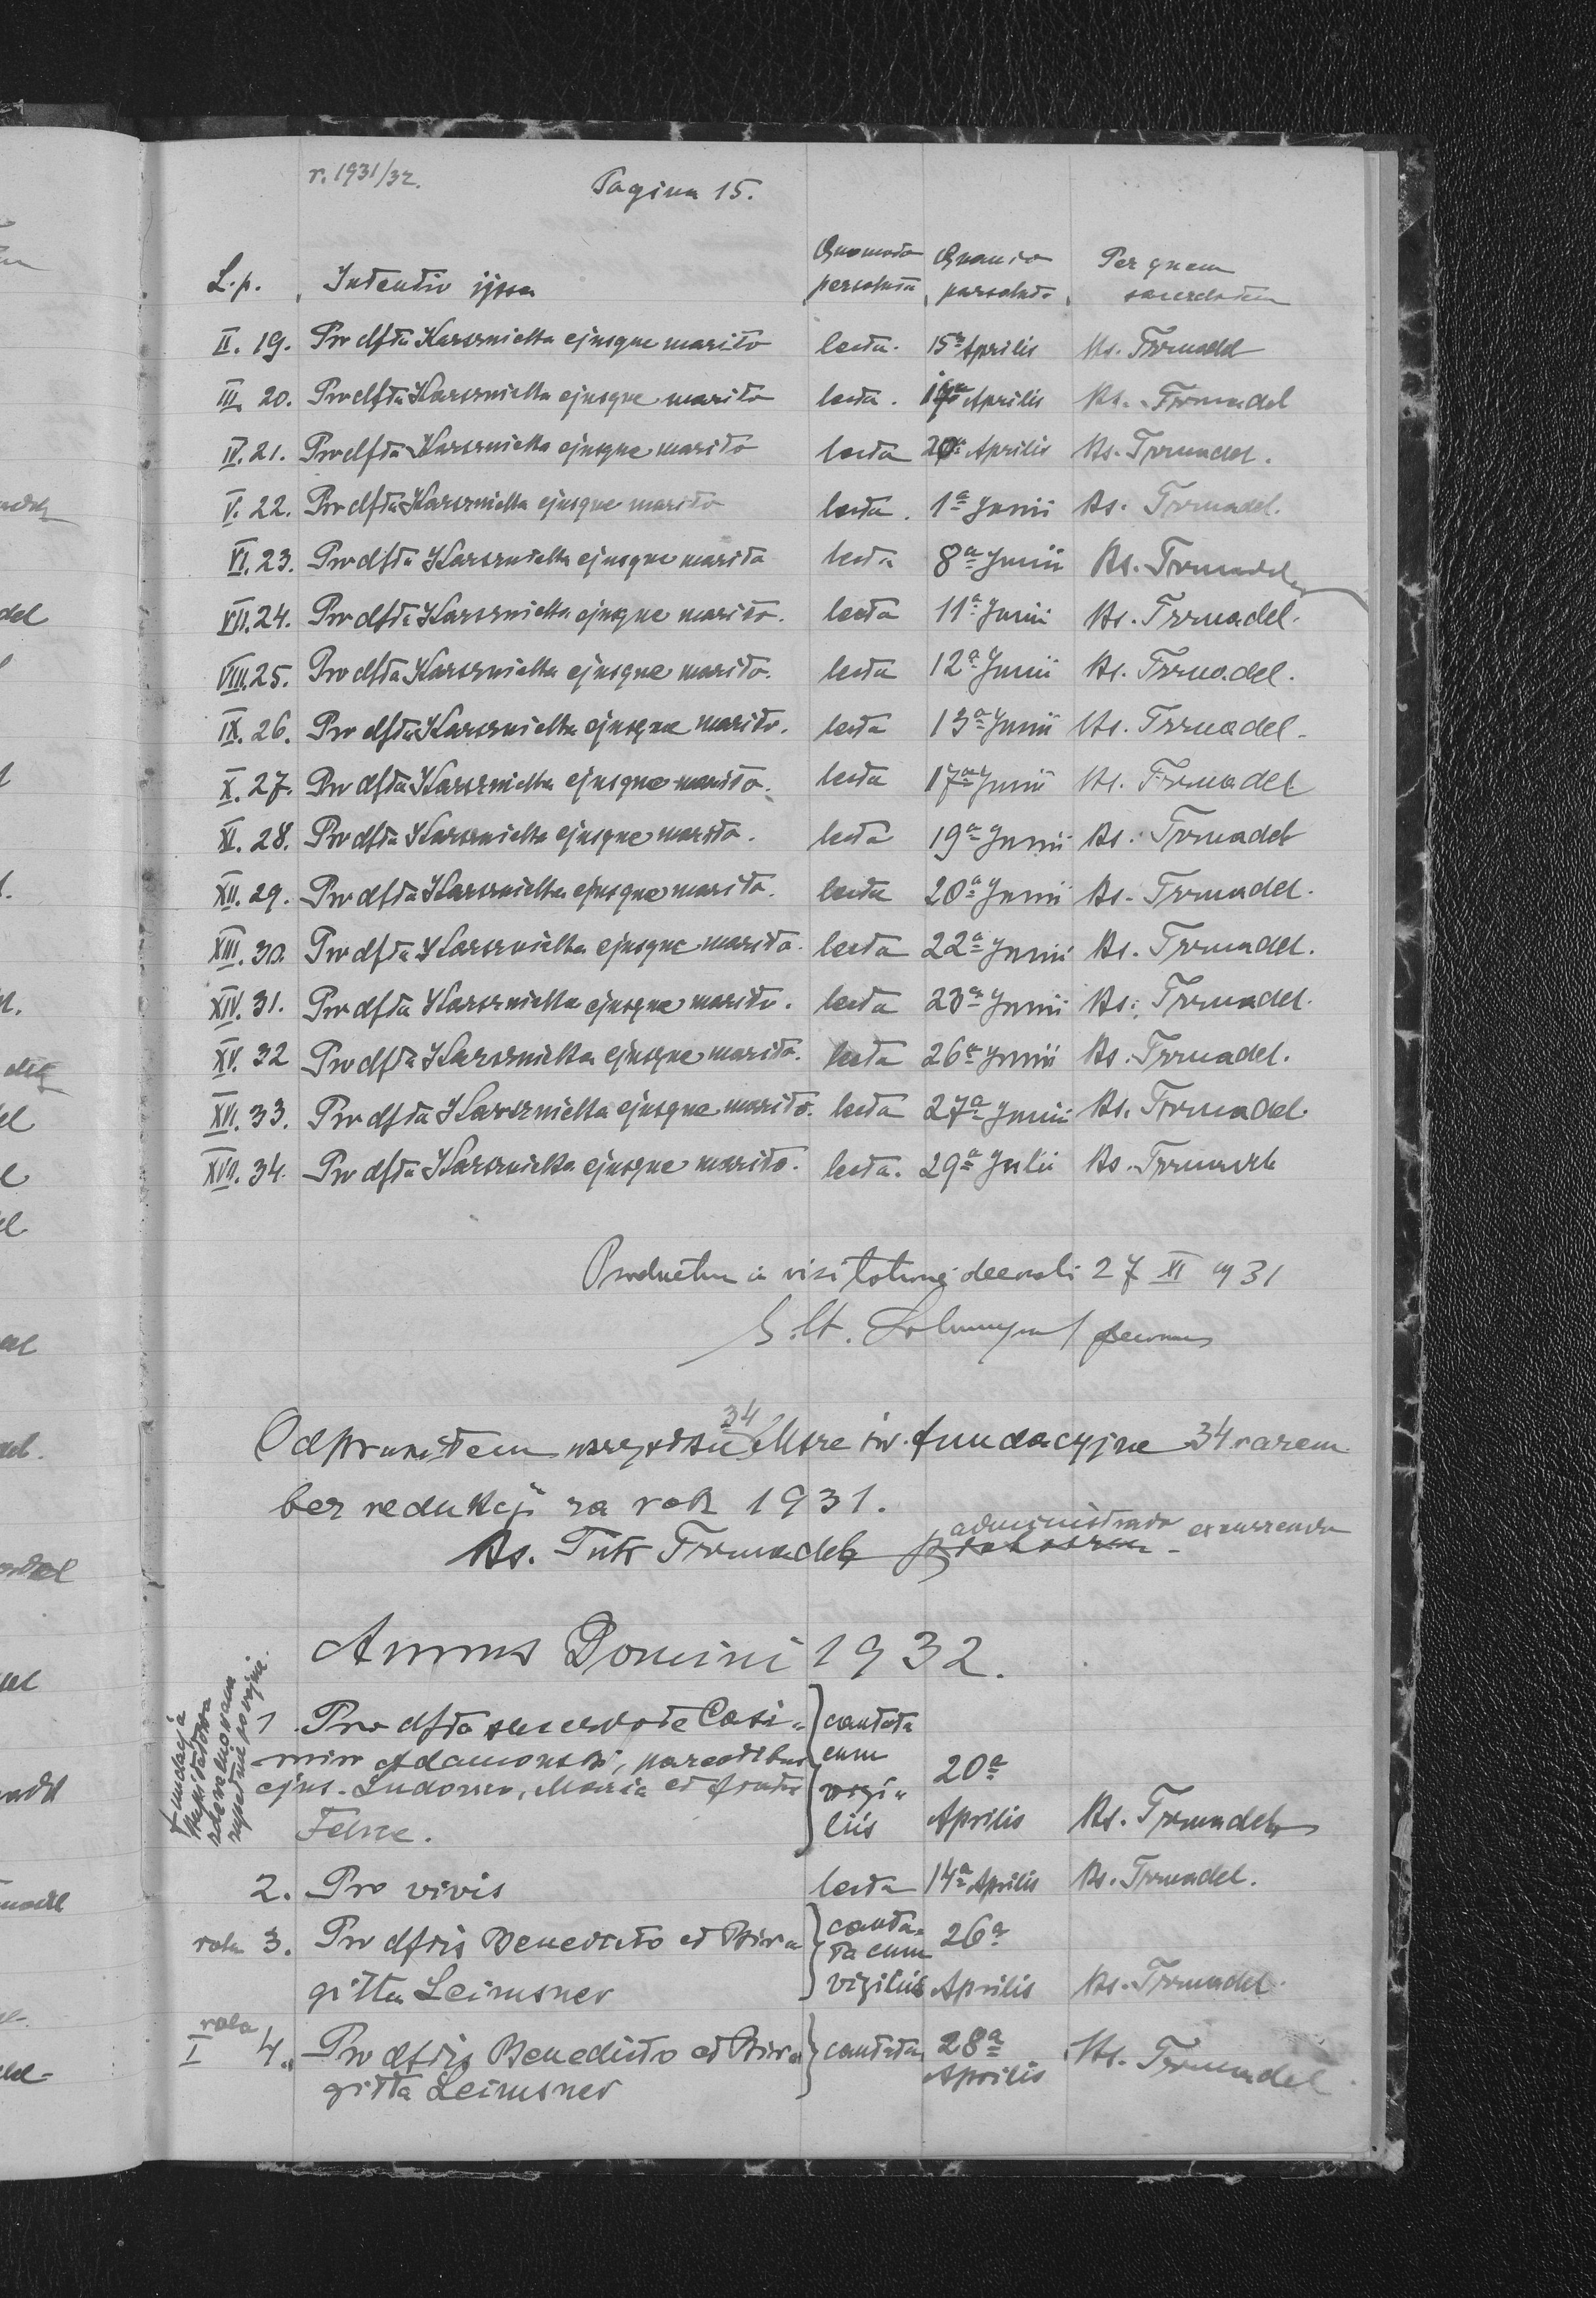 r. 1931/32.
Pagina 15.
L.p. Intentio ipsa Quomodo persoluta Quando persoluta Per quem sacerdotem
II. 19. Pro dfta Karsznicka ejusque marito lecta. 15a Aprilis Ks. Trznadel
III. 20. Pro dfta Karsznicka ejusque marito lecta. Aprilis Ks. Trznadel
IV. 21. Pro dfta Karsznicka ejusque marito lecta Aprilis Ks. Trznadel.
V. 22. Pro dfta Karsznicka ejusque marito lecta. 1a Junii Ks. Trznadel.
VI. 23. Pro dfta Karsznicka ejusque marito lecta 8a Junii Ks. Trznadel
VII. 24. Pro dfta Karsznicka ejusque marito. lecta 11a Junii Ks. Trznadel.
VIII. 25. Pro dfta Karsznicka ejusque marito. lecta 12a Junii Ks. Trznadel.
IX. 26. Pro dfta Karsznicka ejusque marito. lecta 13a Junii Ks. Trznadel.
X. 27. Pro dfta Karsznicka ejusque marito. lecta 17a Junii Ks. Trznadel
XI. 28. Pro dfta Karsznicka ejusque marito. lecta 19a Junii Ks. Trznadel
XII. 29. Pro dfta Karsznicka ejusque marito. lecta 20a Junii Ks. Trznadel.
XIII. 30. Pro dfta Karsznicka ejusque marito. lecta 22a Junii Ks. Trznadel.
XIV. 31. Pro dfta Karsznicka ejusque marito. lecta 23a Junii Ks. Trznadel.
XV. 32 Pro dfta Karsznicka ejusque marito. lecta 26a Junii Ks. Trznadel.
XVI. 33. Pro dfta Karsznicka ejusque marito. lecta 27a Junii Ks. Trznadel.
XVII. 34. Pro dfta Karsznicka ejusque marito. lecta. 29a Julii Ks. Trznadel
Productum in visitatione decanali 27 XI 1931
decanus
34
Odprawiłem wszystkie Msze św. fundacyjne 34 razem
bez redukcji za rok 1931.
administrator excurrendo
Ks. Trznadel
Annus Domini 1932.
Fundacja
1. Pro dfto sacerdote Casi-
miro Adamowski, parentibus
ejus Ludovico, Maria et fratre
Felice.
cantata
cum
vigi-
liis
20a
Aprilis Ks. Trznadel
2. Pro vivis lecta 14a Aprilis Ks. Trznadel.
3. Pro dftis Benedicto et Bir-
gitta Leimsner
canta-
ta cum
vigiliis
26a
Aprilis Ks. Trznadel.
I 4. Pro dftis Benedicto et Bir-
gitta Leimsner
cantata 28a
Aprilis Ks. Trznadel.